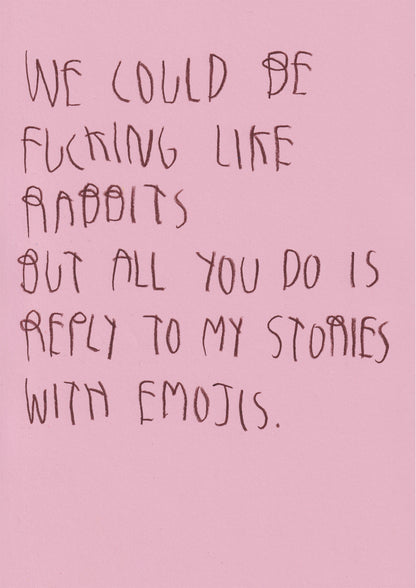 WE COULD BE
FUCKING LIKE
RABBITS
BUT ALL YOU DO IS
REPLY TO MY STORIES
WITH EMOJIS.